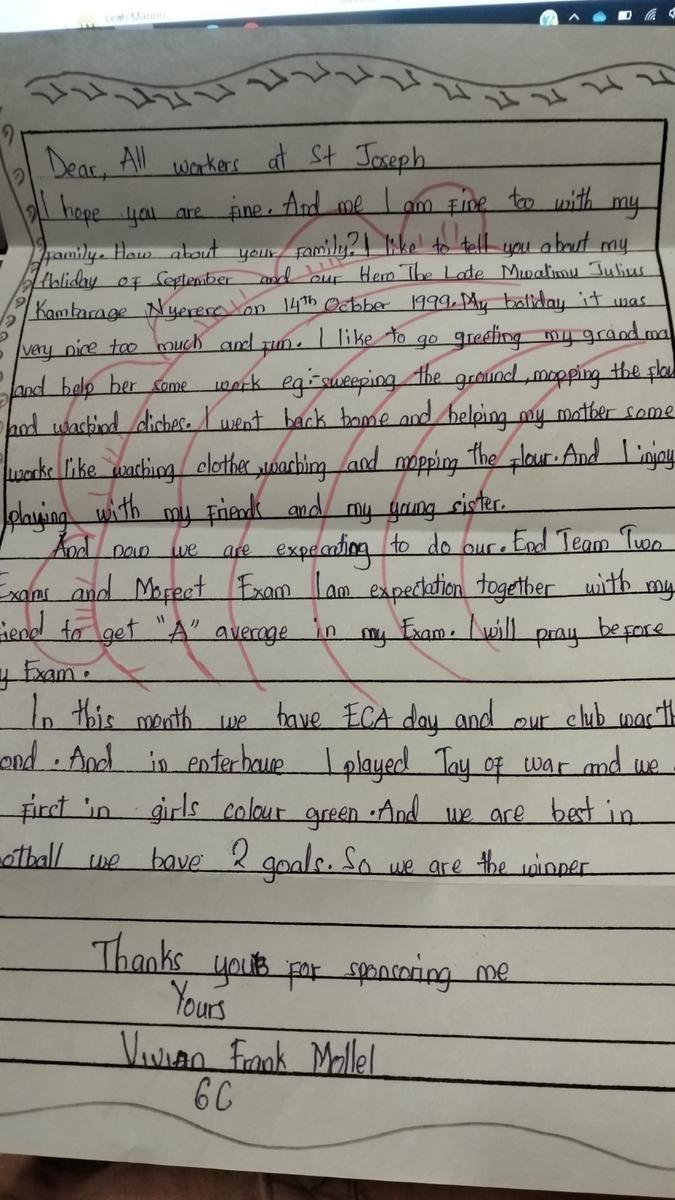 Leah Mannu
Dear, All workers at St Joseph
I hope you are fine. And me I am Fine too with my
family. How about your family? I like to tell you about my
Holiday of September and our Hero The Late Mwalimu Julius
Kambarage Nyerere on 14th Octber 1999. My holiday it was
very nice too much and fun. I like to go greeting my grand ma
and help her some work eg:-sweeping the ground, mopping the flou
and washind dishes. I went back home and helping my mother some
works like washing clothes, washing and mopping the flour. And I injoy
playing with my Friends and my young sister.
And now we are expecating to do our. End Team Two
Exams and Mofect Exam I am expectation together with my
iend to get "A" average in my Exam. I will pray before
y Exam.
In this month we have ECA day and our club was th
ond. And in enterhouse I played Tay of war and we
First in girls colour green. And we are best in
otball we have 2 goals. So we are the winner
Thanks you for sponsoring me
Yours
Vivian Frank Mollel
6C